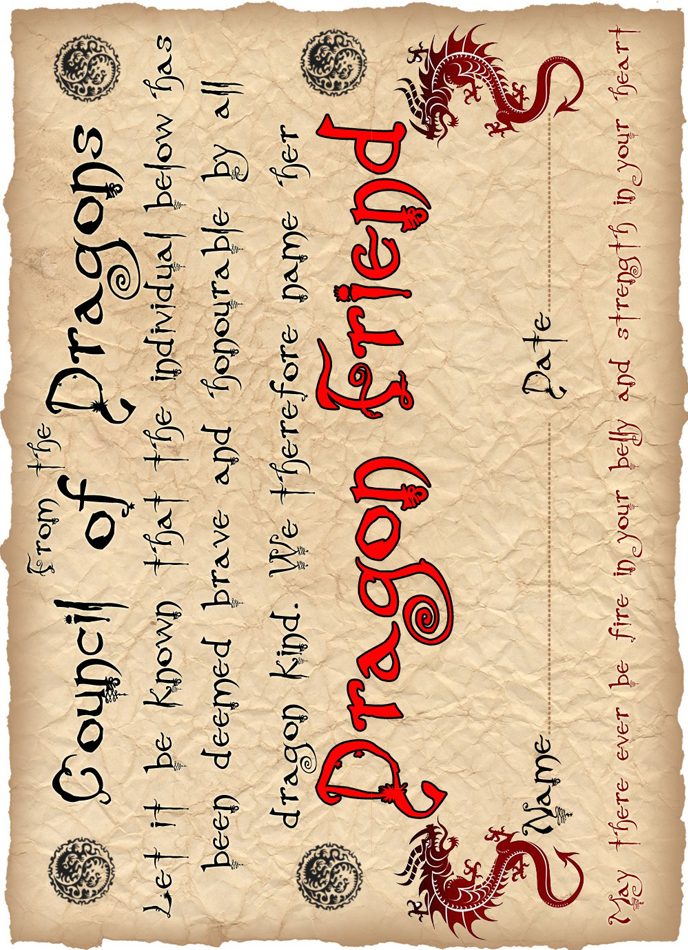 From the
Council of Dragons
Let it be known that the individual below has
been deemed brave and honourable by all
dragon kind. We therefore name her
Dragon Friend
Name Date
May there ever be fire in your belly and strength in your heart